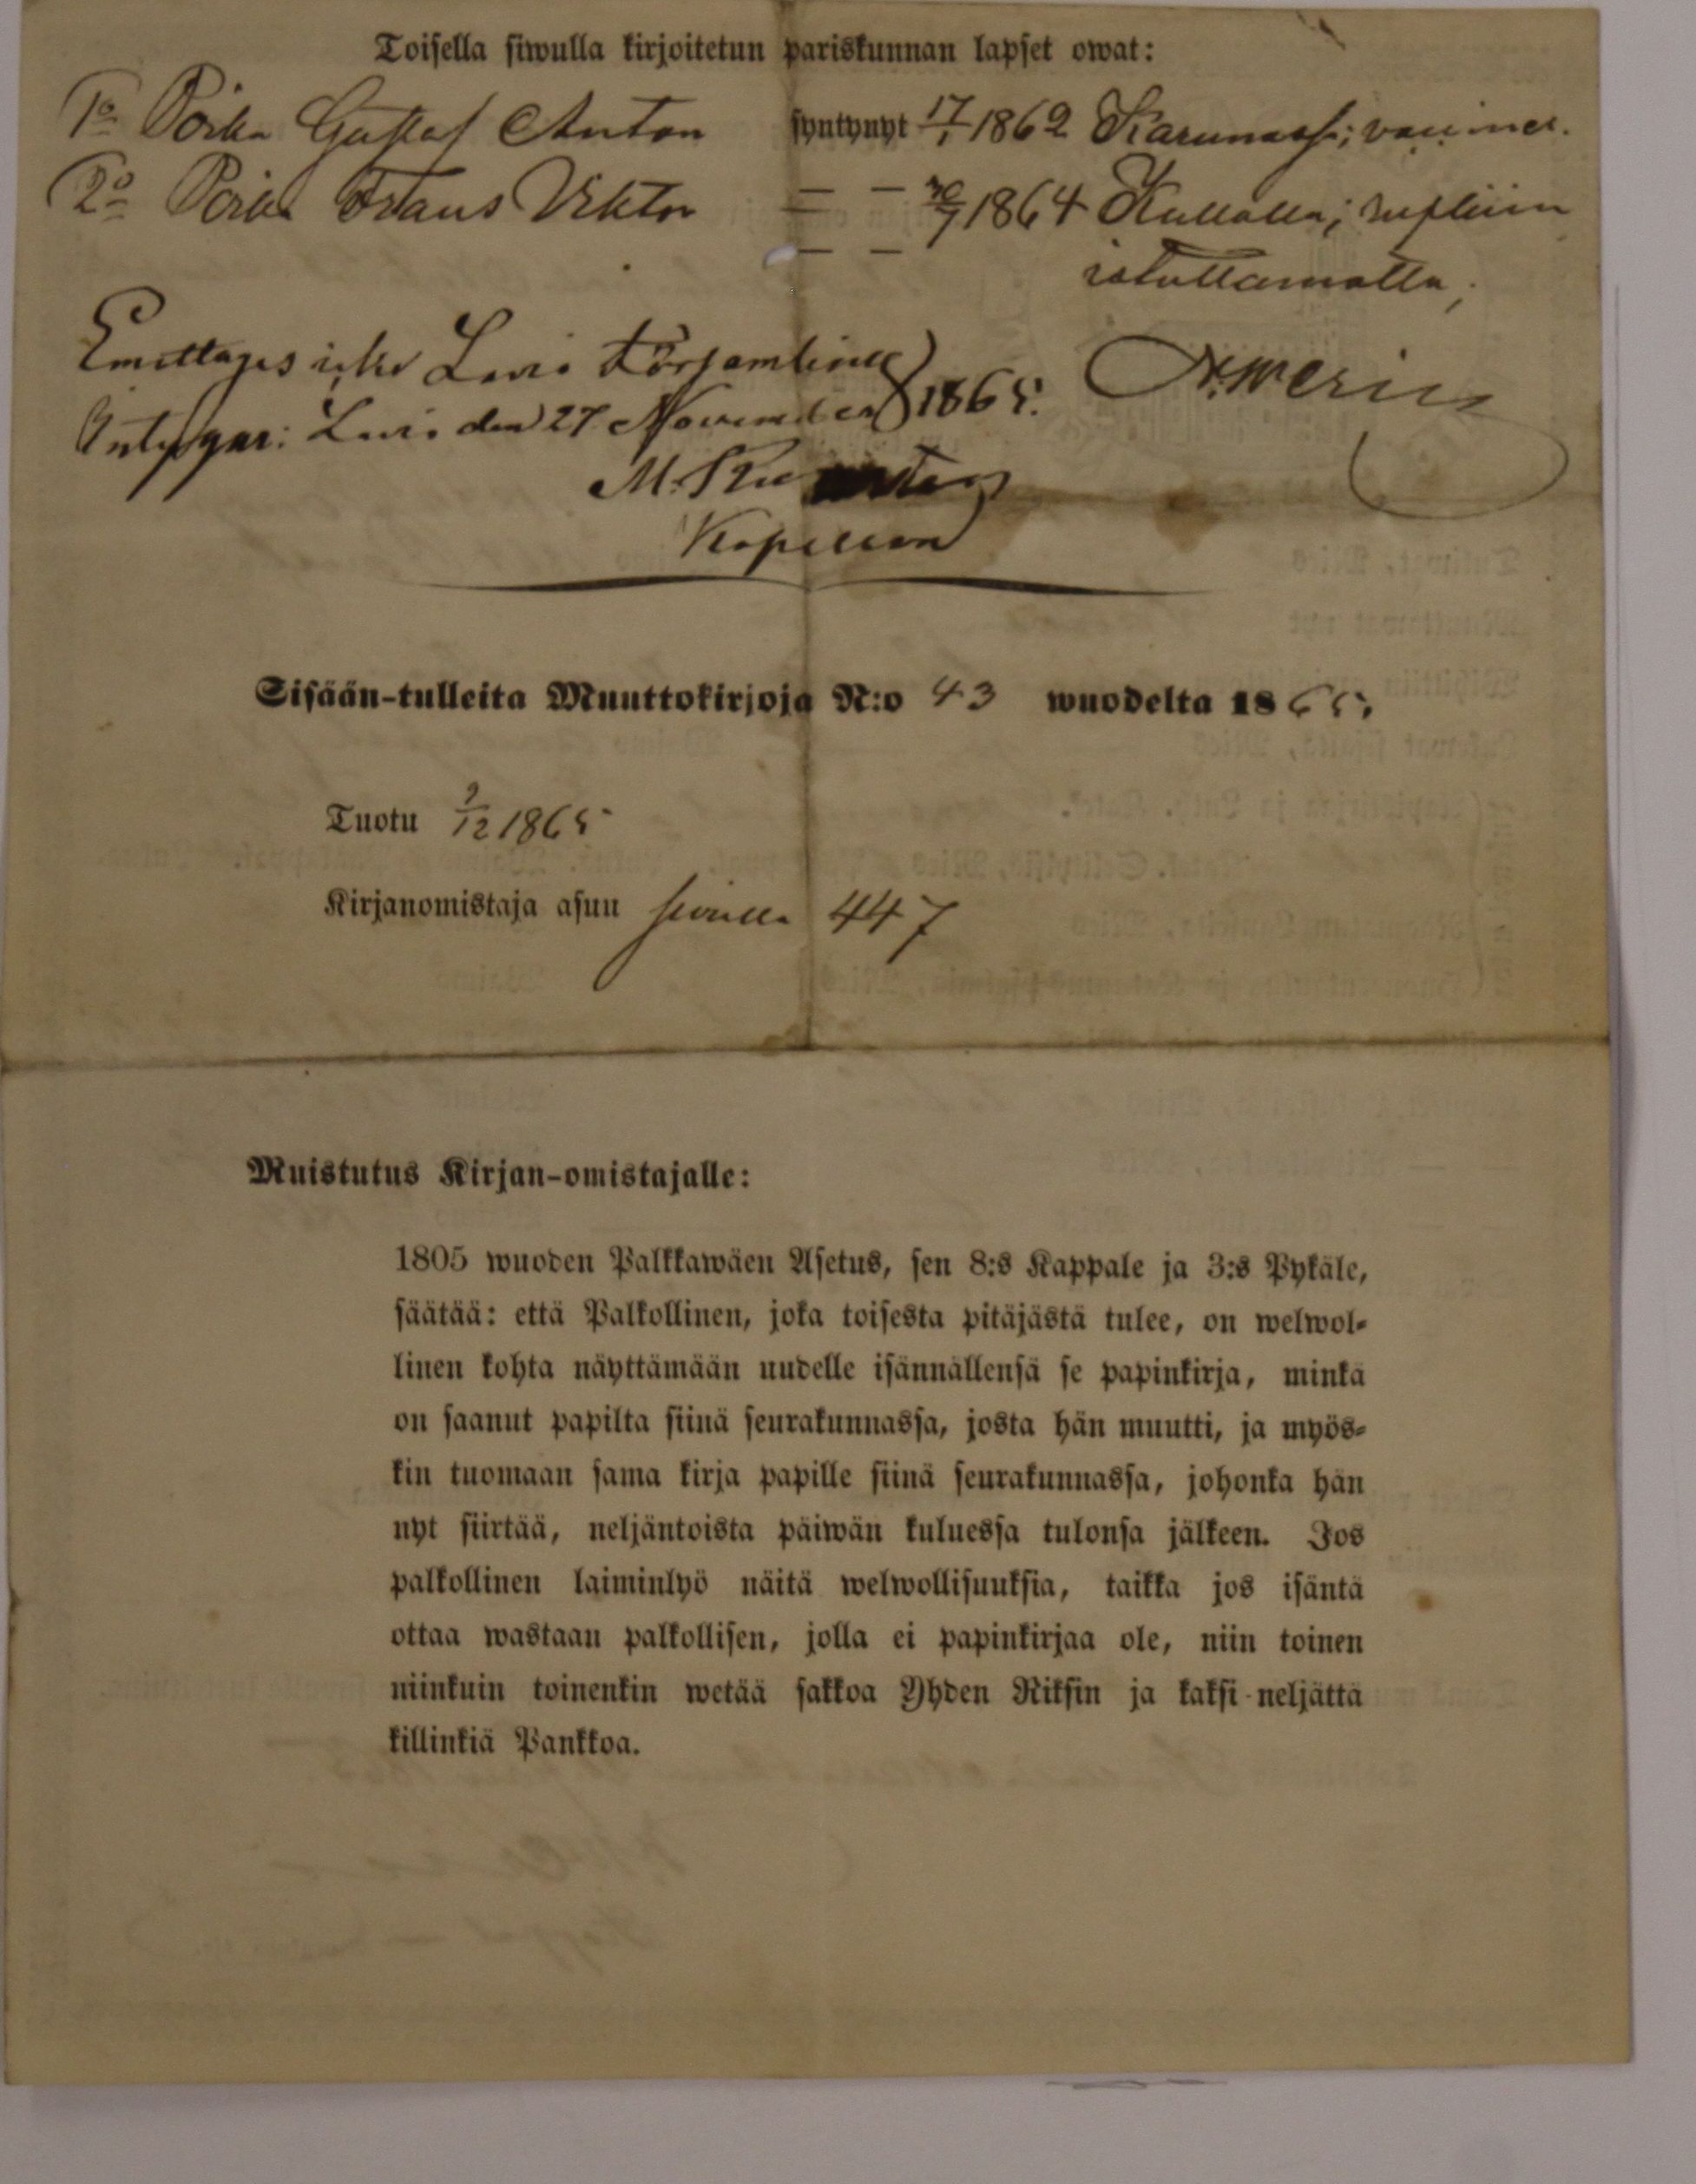 Toisella siwulla kirjoitetun pariskunnan lapset owat:
1o Poika Gustaf Anton syntynyt 17/1 1862 Karunassa;
2o Poika Frans Viktor — — /7 1864 Kullalla;
— — istuttamatta;
Emottages icke Lavi
Intygar: Lavi den 27 November 1865.
M.
Kapellan
Sisään-tulleita Muuttokirjoja N:o 43 wuodelta 1865.
Tuotu 9/12 1865
Kirjanomistaja asuu sivulla 447
Muistutus Kirjan-omistajalle:
1805 wuoden Palkkawäen Asetus, sen 8:s Kappale ja 3:s Pykäle,
säätää: että Palkollinen, joka toisesta pitäjästä tulee, on welwol-
linen kohta näyttämään uudelle isännällensä se papinkirja, minkä
on saanut papilta siinä seurakunnassa, josta hän muutti, ja myös-
kin tuomaan sama kirja papille siinä seurakunnassa, johonka hän
nyt siirtää, neljäntoista päiwän kuluessa tulonsa jälkeen. Jos
palkollinen laiminlyö näitä welwollisuuksia, taikka jos isäntä
ottaa wastaan palkollisen, jolla ei papinkirjaa ole, niin toinen
niinkuin toinenkin wetää sakkoa Yhden Riksin ja kaksi neljättä
killinkiä Pankkoa.